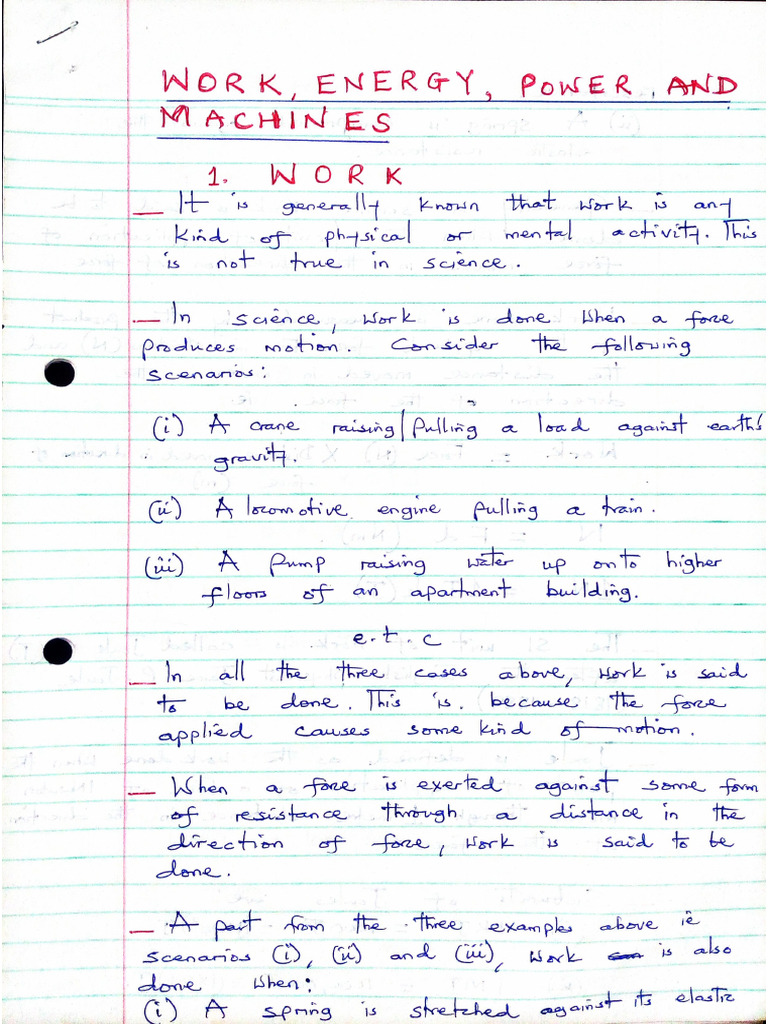 WORK, ENERGY, POWER, AND
MACHINES
1. WORK
— It is generally known that work is any
kind of physical or mental activity. This
is not true in science.
— In science, work is done when a force
produces motion. Consider the following
scenarios:
(i) A crane raising/pulling a load against earth's
gravity.
(ii) A locomotive engine pulling a train.
(iii) A pump raising water up onto higher
floors of an apartment building.
e.t.c
— In all the three cases above, work is said
to be done. This is because the force
applied causes some kind of motion.
— When a force is exerted against some form
of resistance through a distance in the
direction of force, work is said to be
done.
— A part from the three examples above ie
scenarios (i), (ii) and (iii), work is also
done when:
(i) A spring is stretched against its elastic